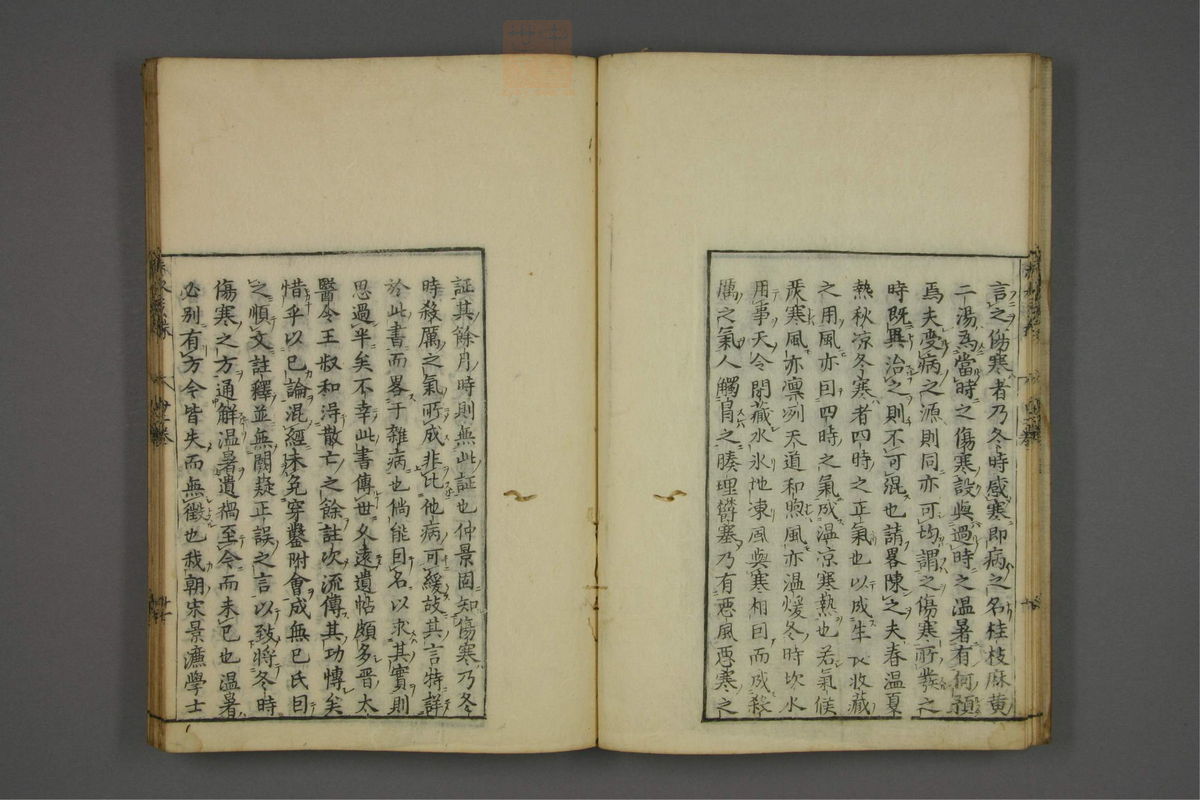 言之傷寒者乃冬時感寒即病之名桂枝麻黄
二湯爲當時之傷寒設與過時之温暑有何預
焉夫受病之源則同亦可均謂之傷寒所發之
時既異治之則不可混也請畧陳之夫春温夏
熱秋涼冬寒者四時之正氣也以成生収藏
之用風亦因四時之氣成温凉寒熱也若氣候
嚴寒風亦凛冽天道和煦風亦温煖冬時坎水
用事天令閉藏水氷地凍風與寒相因而成殺
厲之氣人觸冒之腠理欝塞乃有悪風悪寒之
証其餘月時則無此証也仲景固知傷寒乃冬
時殺厲之氣所成非比他病可緩故其言特詳
於此書而畧于雜病也倘能因名以求其實則
思過半矣不幸此書傳世久遠遺帖頗多晋太
醫令王叔和淂散亡之餘註次流傳其功博矣
惜乎以已論混經未免穿鑿附會成無已氏因
之順文註釋並無闕疑正誤之言以致將冬時
傷寒之方通解温暑遺禍至今而未已也温暑
必別有方今皆失而無徴也我朝宋景濂學士